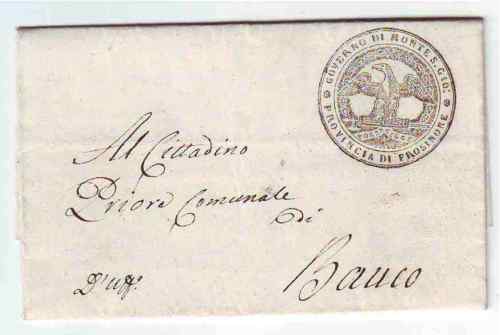 GOVERNO DI MONTE S. GIO:
PROVINCIA DI FROSINONE
Al Cittadino
Priore Comunale
di
Bauco
D'Uff.